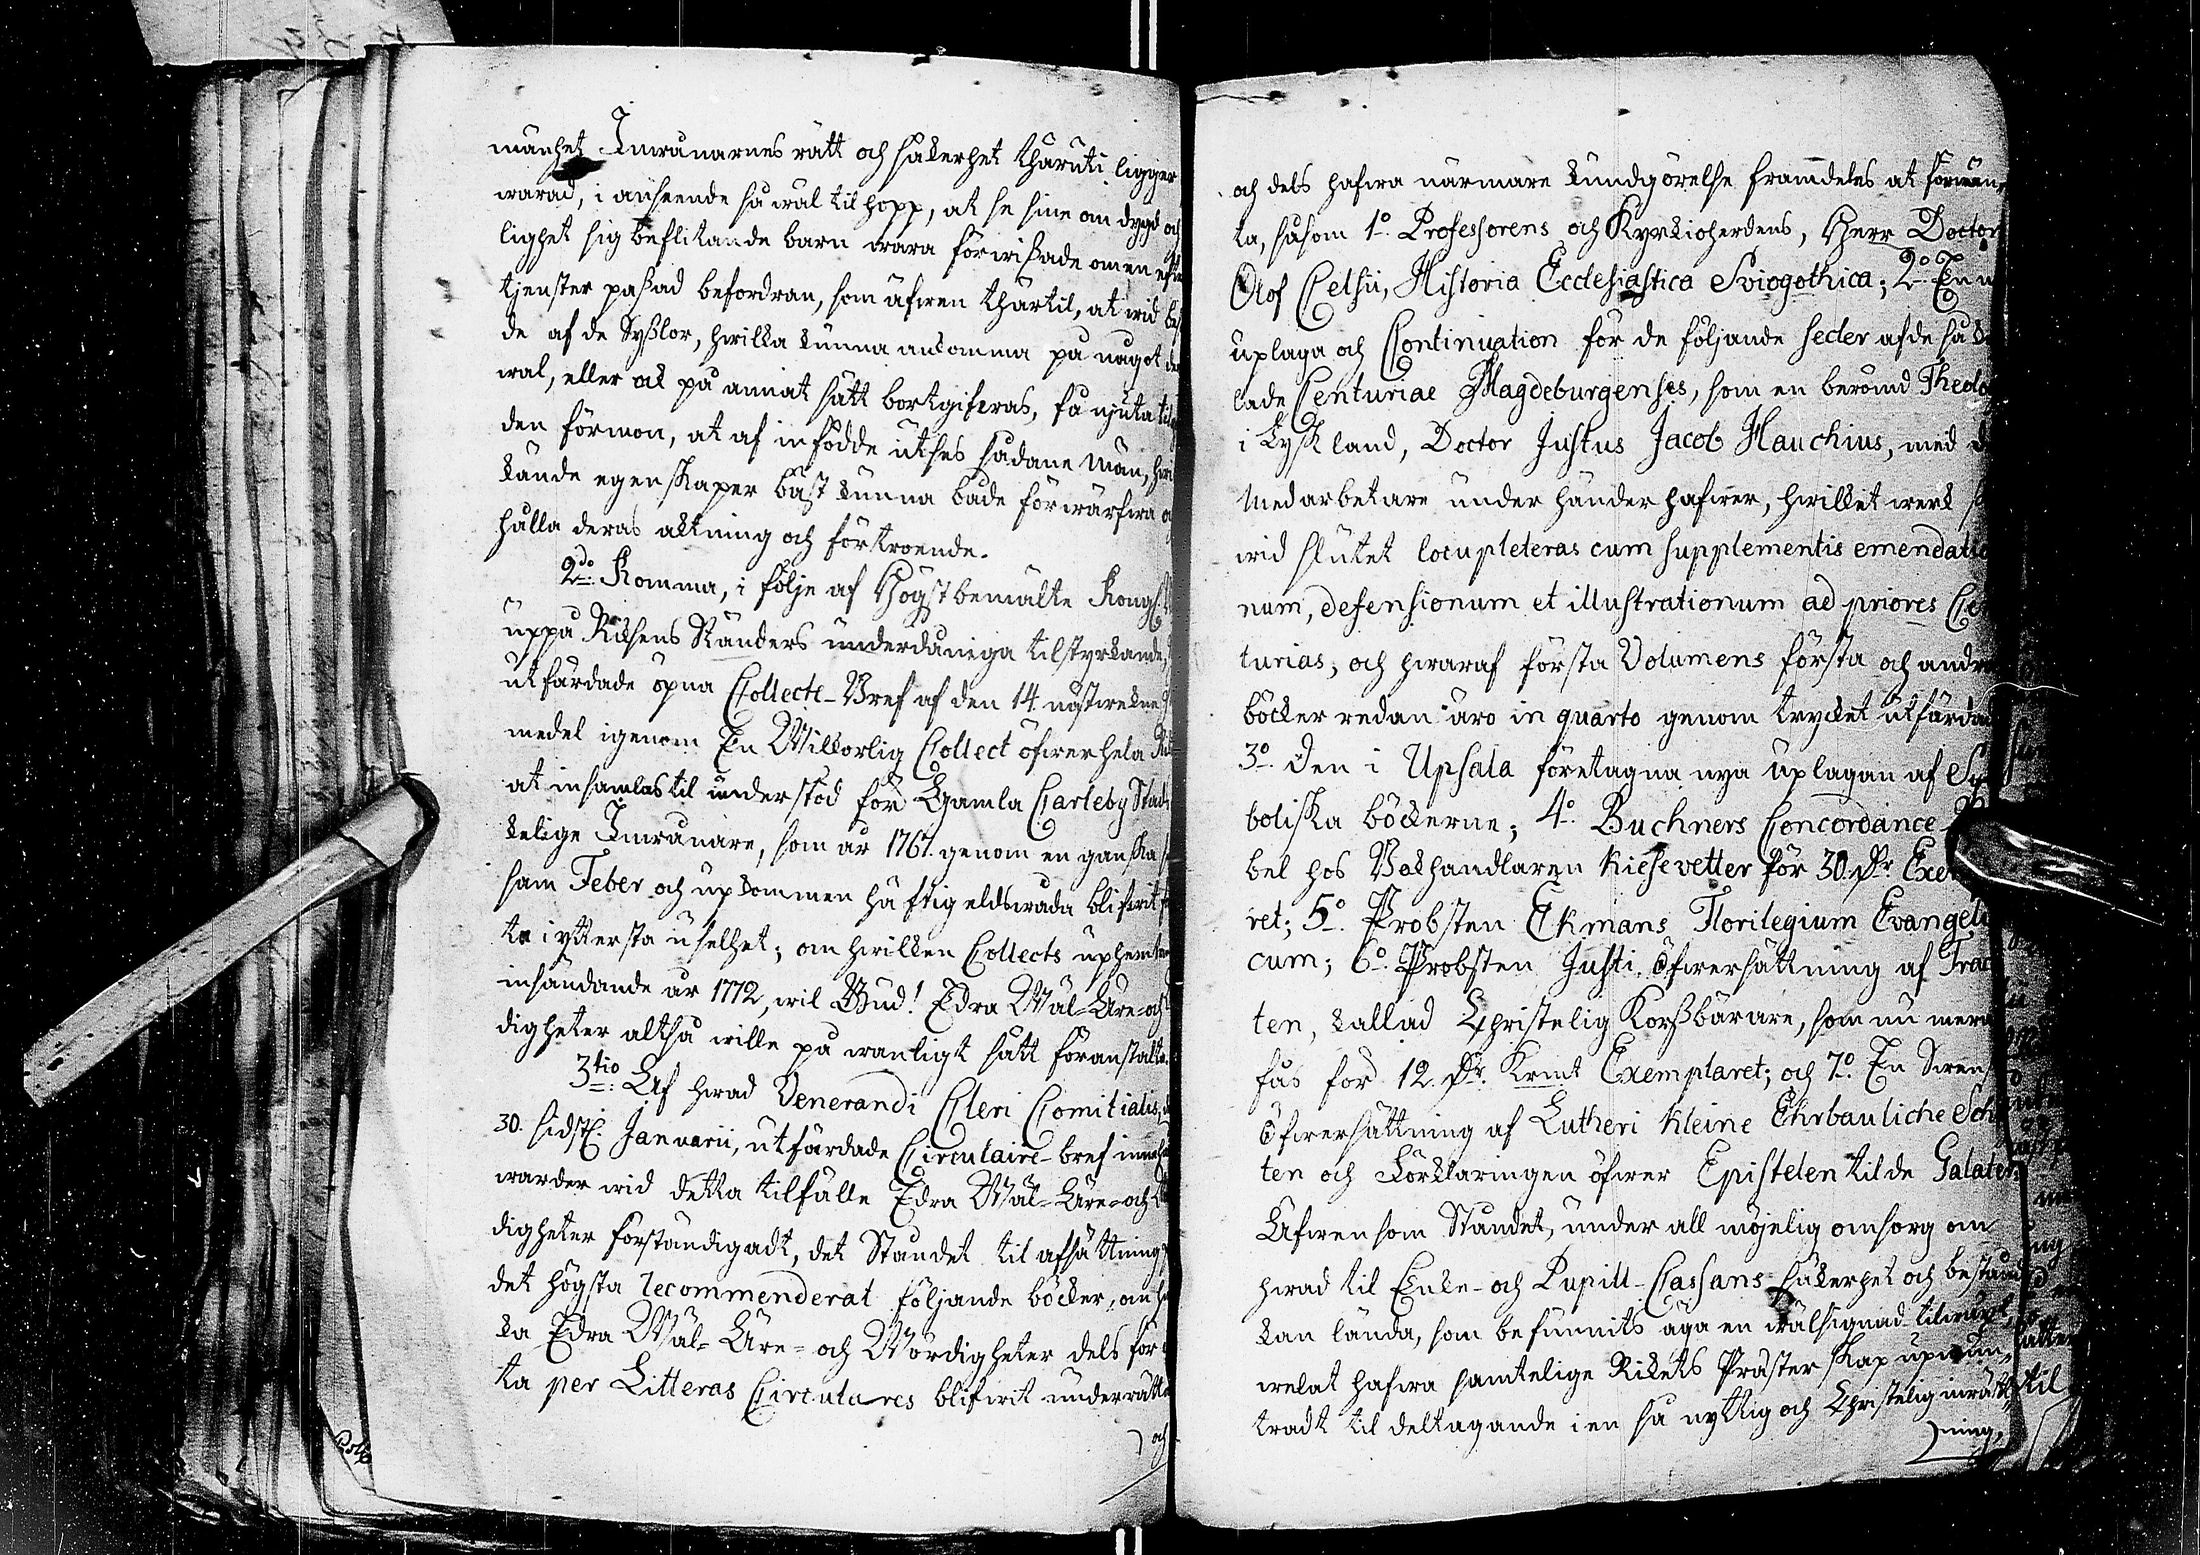 månhet Inwånarnes rätt och säkerhet theruti ligger
warad, i anseende så wäl til hopp, at se sine om dygd och
lighet sig beflitande barn wara förwißade om en efter
tjenster paßad befordran, som äfwen thertil, at wid
de af de Syßlor, hwilka kunna ankomma på något
wal, eller ock på annat sätt bortgifwas, få njuta
den förmon, at af infödde utses sådane Män,
kände egenskaper bäst kunna både förwärfwa
hålla deras aktning och förtroende.
2do Komma, i följe af Högstbemälte Kongl.
uppå Riksens Ständers underdåniga tilstyrkande,
utfärdade öpna Collecte-Bref af den 14 nästwekne
medel igenom En Wilkorlig Collect öfwer hela
at insamlas til understöd för Gamla Carleby Stads
kelige Inwånare, som år 1767. genom en ganska
sam Feber och upkommen häftig eldswåda blifwit
te i yttersta uselhet; om hwilken Collects uphemtan
insändande år 1772, wil Gud! Edra Wäl-Äre-och
digheter altså wille på wanligt sätt föranstalta.
3tio Af hwad Venerandi Cleri Comitialis,
30. sidstl. Januarii, utfärdade Circulaire-bref
warder wid detta tilfälle Edra Wäl-Äre-och
digheter förständigadt, det Ståndet til afsättning
det högsta recommenderat följande böcker, om
ka Edra Wäl-Äre-och Wördigheter dels för
ta per Litteras Circulares blifwit underrätta
och
och dels hafwa närmare kundgörelse framdeles at förwän,
ta, såsom 1o. Professorens och Kyrkioherdens, Herr Doctor
Olof Celsii, Historia Ecclesiastica Sviogothica; 2o. En
uplaga och Continuation för de följande secler af de så
lade Centuriae Magdeburgenses, som en berömd Theolo
i Tyskland, Doctor Justus Jacob Hauchius, med
Medarbetare under händer hafwer, hwilket werk
wid slutet locupleteras cum supplementis emendatio
num, defensionum et illustrationum ad priores Cen
turias, och hwaraf första Volumens första och andra
böcker redan äro in quarto genom trycket utfärda
3o. Den i Upsala företagna nya uplagan af
boliska böckerne; 4o. Buchners Concordance
bel hos Bokhandlaren Kiesevetter för 30 Dr Exe
ret; 5o. Probsten Ekmans Florilegium Evangeli
cum; 6o. Probsten Justi öfwersättning af Trac
ten, kallad Christelig Korßbärare, som nu mera
fås för 12. Dr. Krmt Exemplaret; och 7o. En Swen
öfwersättning af Lutheri Kleine Ehrbauliche Sch
ten och Förklaringen öfwer Epistelen til de Galater
Äfwen som Ståndet, under all möjelig omsorg om
hwad til Enke-och Pupill-Cassans säkerhet och bestånd
kan lända, som befunnits äga en wälsignad tilwäxt,
welat hafwa samtelige Rikets Prästerskap upmun,
tradt til deltagande i en så nyttig och Christelig inrätt,
ning,